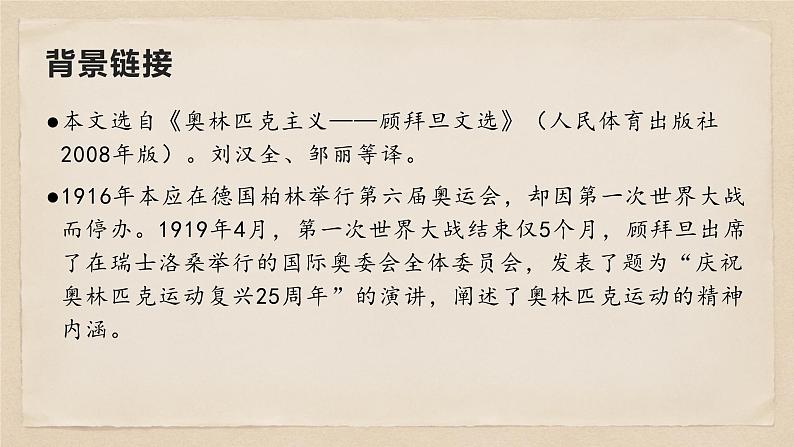 背景链接
●本文选自《奥林匹克主义——顾拜旦文选》（人民体育出版社
2008年版）。刘汉全、邹丽等译。
●1916年本应在德国柏林举行第六届奥运会，却因第一次世界大战
而停办。1919年4月，第一次世界大战结束仅5个月，顾拜旦出席
了在瑞士洛桑举行的国际奥委会全体委员会，发表了题为“庆祝
奥林匹克运动复兴25周年”的演讲，阐述了奥林匹克运动的精神
内涵。